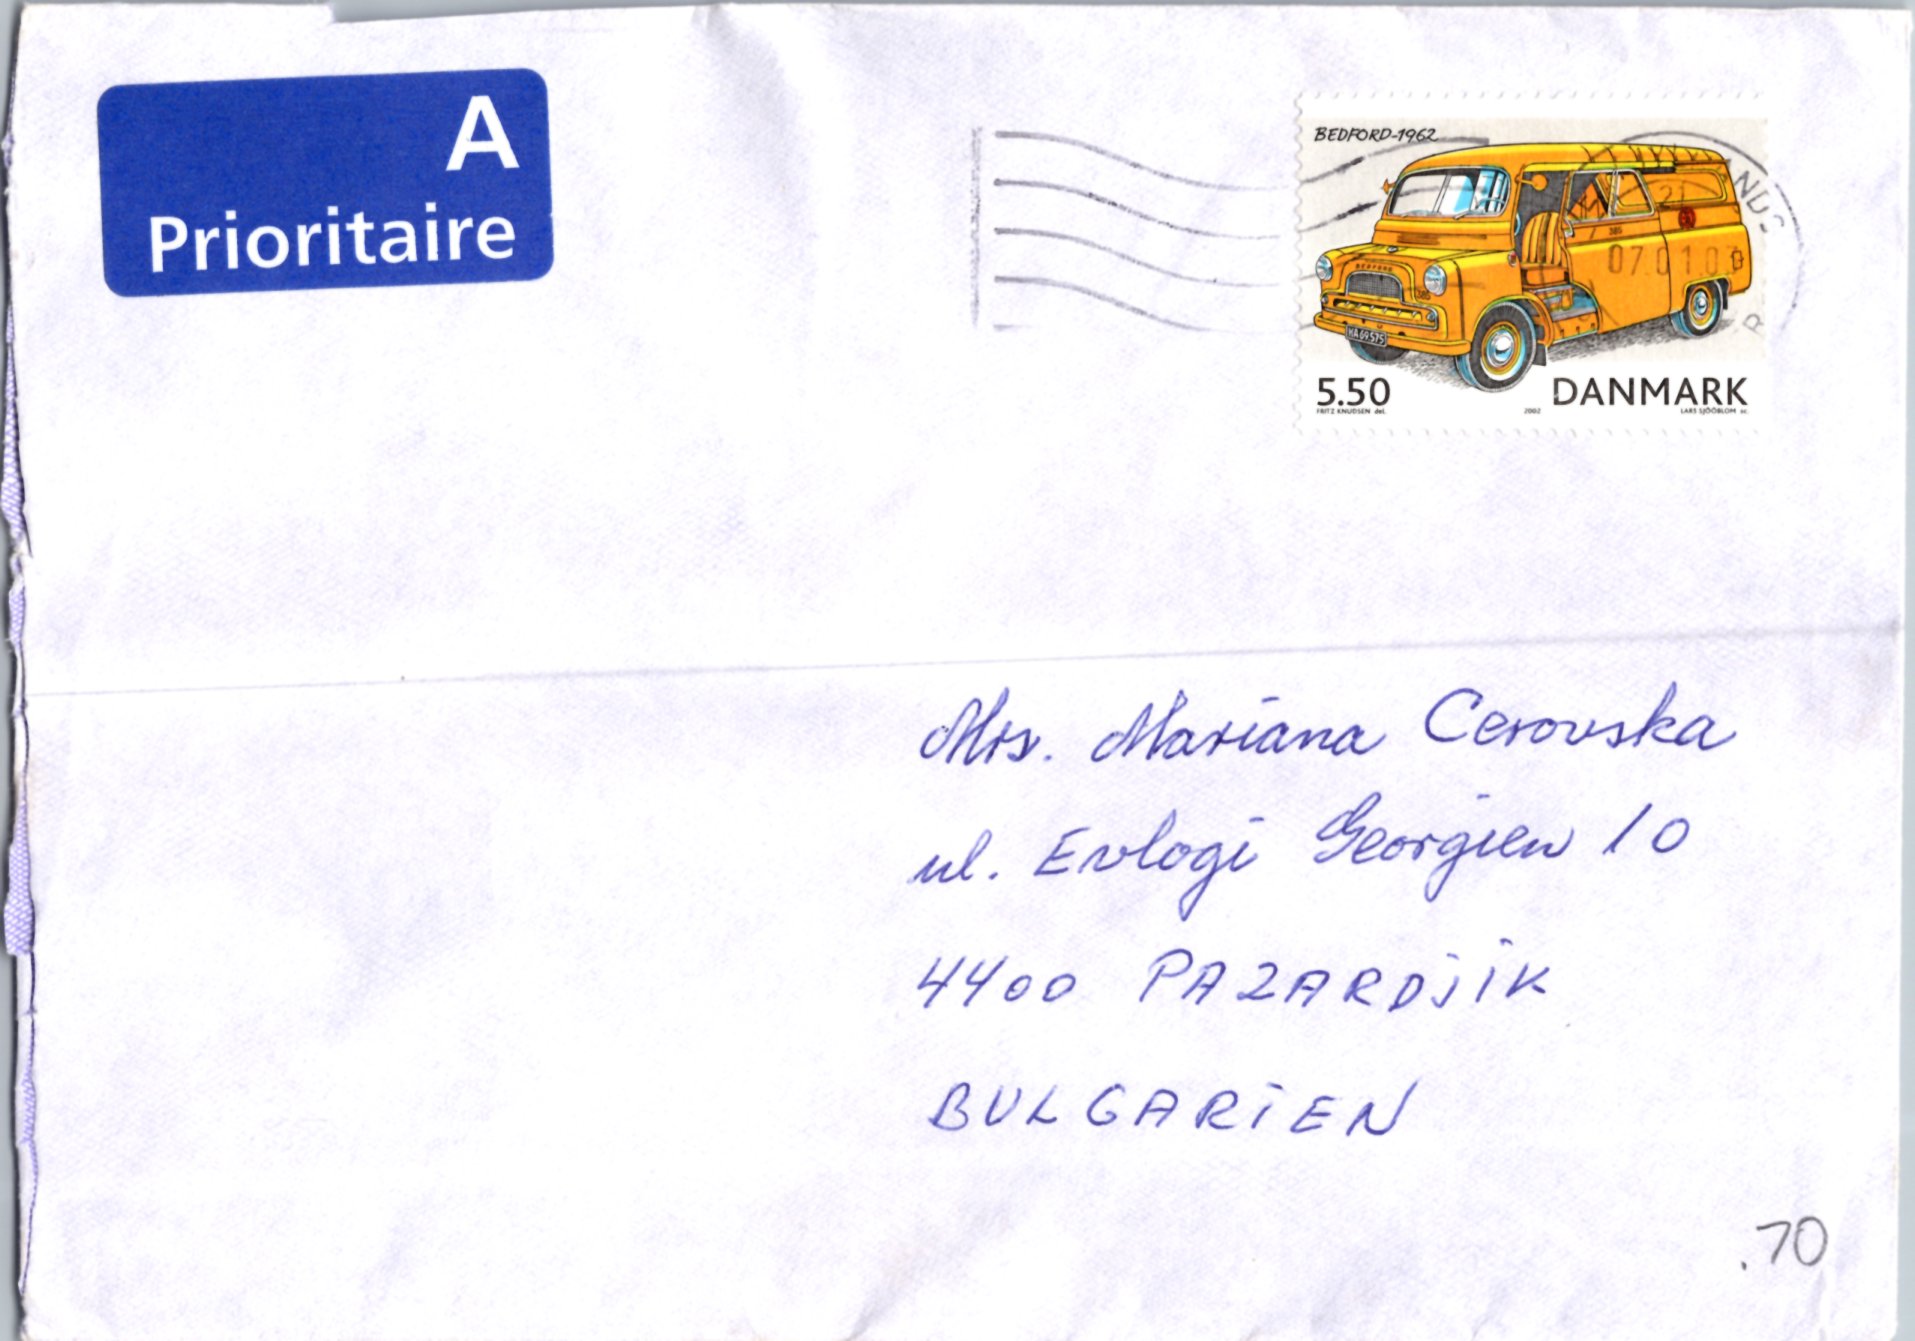 A
Prioritaire
BEDFORD-1962
21
07.01.03
BEDFORD
385
385
HA 69 575
5.50 DANMARK
FRITZ KNUDSEN del. 2002 LARS SJÖÖBLOM sc.
Mrs. Mariana Cerovska
ul. Evlogi Georgiew 10
4400 PAZARDjiK
BULGARIEN
.70